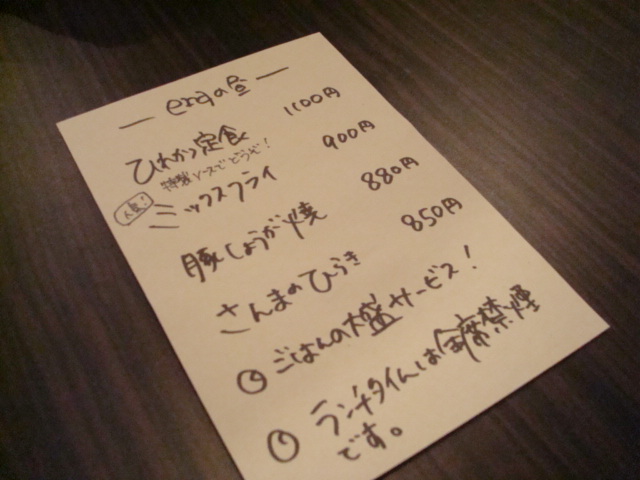 — eraの昼 —
ひれかつ定食 1100円
特製ソースでどうぞ!
人気! ミックスフライ 900円
豚しょうが焼 880円
さんまのひらき 850円
ごはんの大盛サービス!
ランチタイムは全席禁煙
です。